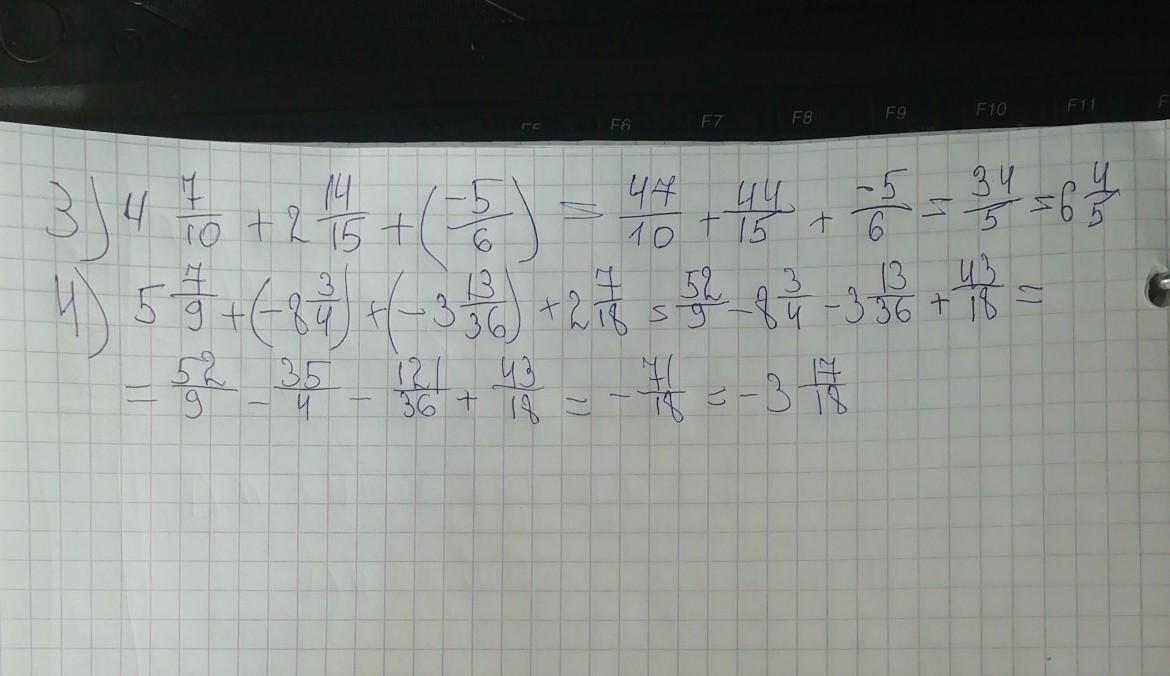 F5 F6 F7 F8 F9 F10 F11 F
3) 4 7/10 + 2 14/15 + (-5/6) = 47/10 + 44/15 + -5/6 = 34/5 = 6 4/5
4) 5 7/9 + (-8 3/4) + (-3 13/36) + 2 7/18 = 52/9 - 8 3/4 - 3 13/36 + 43/18 =
= 52/9 - 35/4 - 121/36 + 43/18 = - 71/18 = - 3 17/18